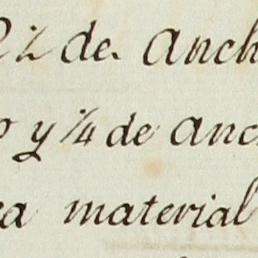 2½ de anch
o y ¼ de anc
ea material